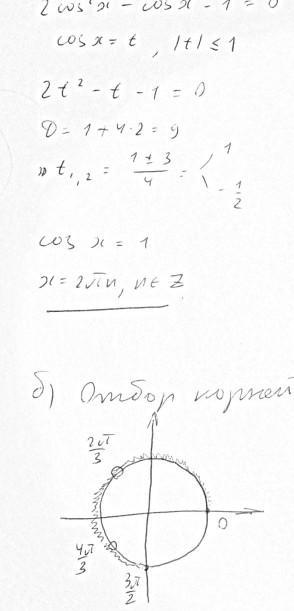 2cos²x - cosx - 1 = 0
cosx = t, |t| ≤ 1
2t² - t - 1 = 0
D = 1 + 4·2 = 9
t₁,₂ = (1 ± 3)/4 = 1
-1/2
cos x = 1
x = 2πn, n ∈ Z
б) Отбор корней
2π/3
0
4π/3
3π/2